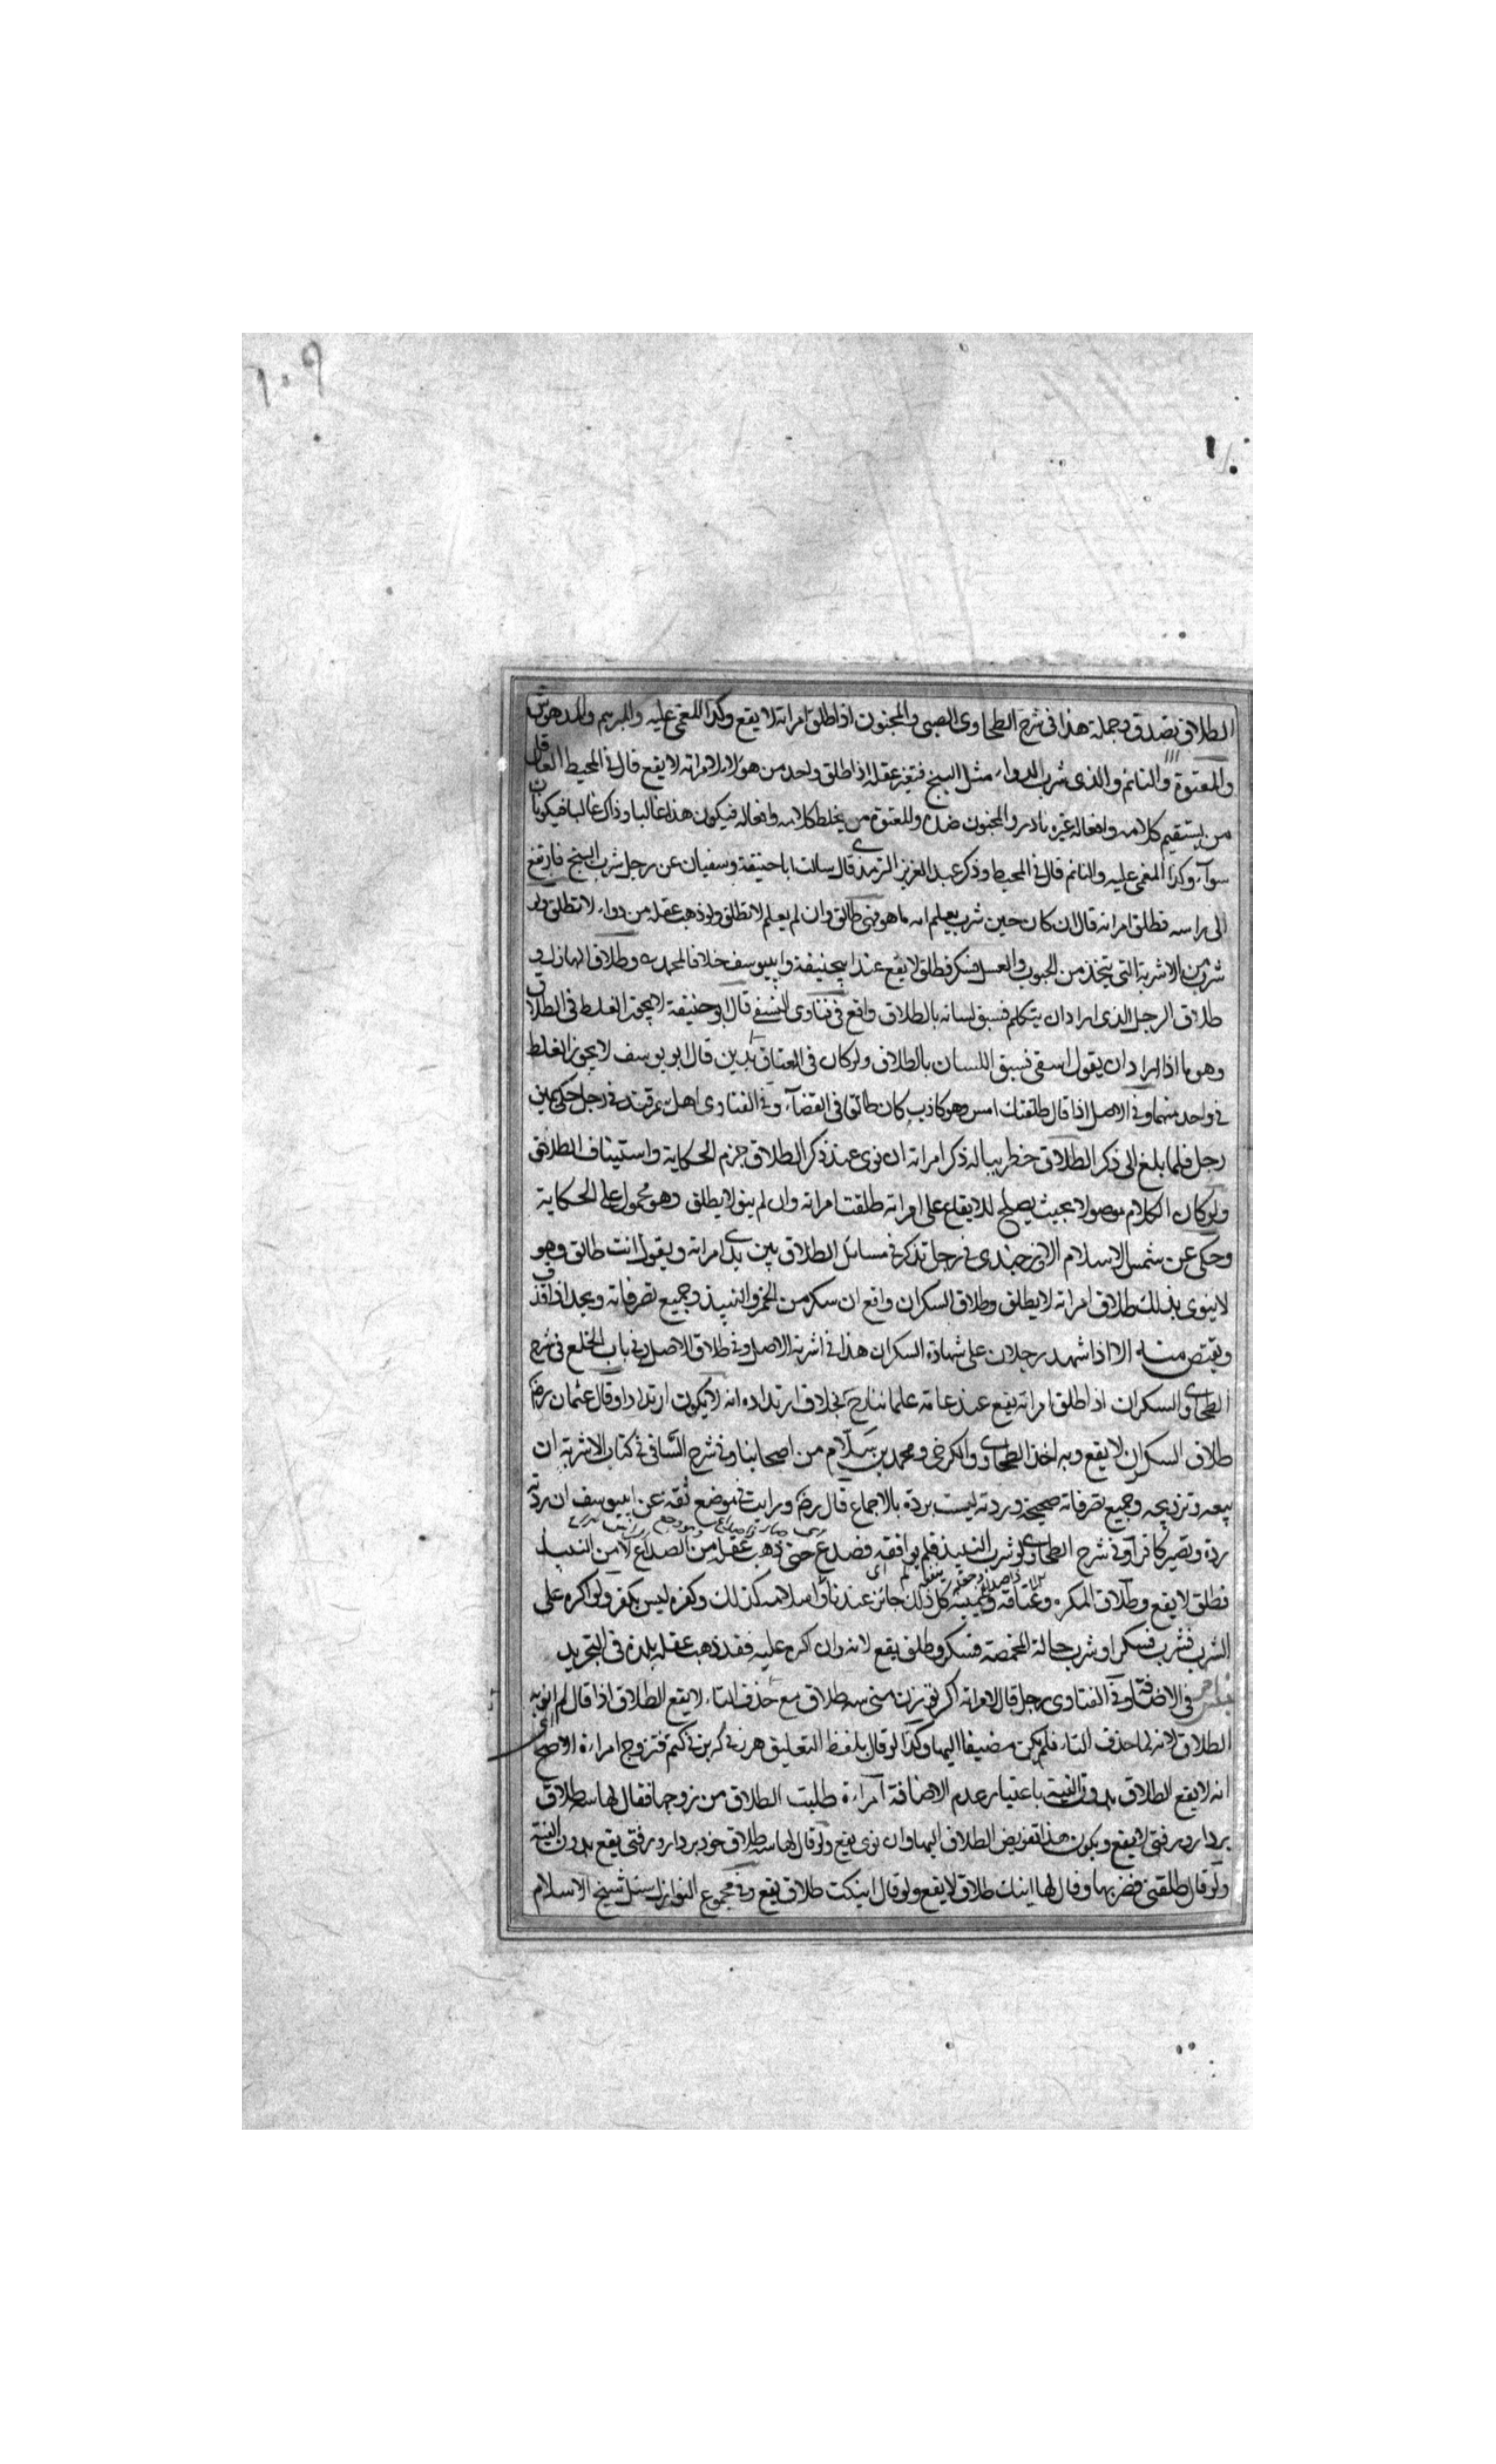 ١٠٩
الطلاق يصدق وجملة هذا في شرح الطحاوى الصبى والمجنون اذا طلق امراته لا يقع وكذا المغمى عليه والمبرسم والمدهوش
والمعتوة والنائم والذى شرب الدواء مثل البنج فتغير عقله اذا طلق واحد من هولاء لامراته لا يقع قال في المحيط العاقل
من يستقيم كلامه وافعاله غيره نادر والمجنون ضده والمعتوة من يخلط كلامه وافعاله فيكون هذا غالبا وذاك غالبا فيكونان
سوآء وكذا المغمى عليه والنائم قال في المحيط وذكر عبد العزيز الترمذى قال سالت ابا حنيفة وسفيان عن رجل شرب البنج فارتفع
الى راسه فطلق امراته قال ان كان حين شرب يعلم انه ما هو فهى طالق وان لم يعلم لا تطلق ولو ذهب عقله من دواء لا تطلق ولو
شرب من الاشربة التى يتخذ من الحبوب والعسل فسكر فطلق لا يقع عند ابيحنيفة وابييوسف خلافا لمحمد ره وطلاق الهازل و
طلاق الرجل الذى اراد ان يتكلم فسبق لسانه بالطلاق واقع في فتاوى النسفى قال ابو حنيفة لا يجوز الغلط في الطلاق
وهو ما اذا اراد ان يقول اسقى فسبق اللسان بالطلاق ولو كان في العتاق يدين قال ابو يوسف لا يجوز الغلط
في واحد منهما وفي الاصل اذا قال طلقتك امس وهو كاذب كان طالقا في القضآء وفي الفتاوى اهل سمرقند في رجل حكى يمين
رجل فلما بلغ الى ذكر الطلاق خطر بباله ذكر امراته ان نوى عند ذكر الطلاق جزم الحكاية واستيناف الطلاق
ولو كان الكلام موصولا بحيث يصلح للايقاع على امراته طلقت امراته وان لم ينو لا يطلق وهو محمول على الحكاية
وحكى عن شمس الاسلام الاوزجندى في رجل تذكر في مسائل الطلاق بين يدى امراته ويقول انت طالق وهو
لا ينوى بذلك طلاق امراته لا يطلق وطلاق السكران واقع ان سكر من الخمر والنبيذ وجميع تصرفاته ويحد اذا قذف
ويقتص منه الا اذا شهد رجلان على شهادة السكران هذا في اشربة الاصل وفي طلاق الاصل وفي باب الخلع في شرح
الطحاوى والسكران اذا طلق امراته يقع عند عامة علمائنا رح بخلاف ارتداده انه لا يكون ارتدادا وقال عثمان رضه
طلاق السكران لا يقع وبه اخذ الطحاوى والكرخى ومحمد بن سلام من اصحابنا وفي شرح الشافى في كتاب الاشربة ان
بيعه وتزويجه وجميع تصرفاته صحيحة وردته ليست بردة بالاجماع قال رضه ورايت في موضع ثقة عن ابييوسف ان ردته
ردة وتصير كافرا وفي شرح الطحاوى لو شرب النبيذ فلم يوافقه فصدع حتى ذهب عقله من الصداع لا من النبيذ
فطلق لا يقع وطلاق المكره وعتاقه ويمينه كل ذلك جائز عندنا واسلامه كذلك وكفره ليس بكفر ولو اكره على
الشرب فشرب فسكر او شرب حالة المخمصة فسكر وطلق يقع لانه وان اكره عليه فقد ذهب عقله بلذة في التجريد
في الاضافة وفي الفتاوى رجل قال لامراته اكر تو زن منى سه طلاق مع حذف التاء لا يقع الطلاق اذا قال لم انو به
الطلاق لانه لما حذف التاء فلم يكن مضيفا اليها وكذا لو قال بلفظ التعليق هر زنى كه بزنى كنم فتزوج امراءة الاصح
انه لا يقع الطلاق بدون النية باعتبار عدم الاضافة امراءة طلبت الطلاق من زوجها فقال لها سه طلاق
بردار ورفتى لا يقع ويكون هذا تفويض الطلاق اليها وان نوى يقع ولو قال لها سه طلاق خود بردار ورفتى يقع بدون النية
ولو قال طلقتنى فضربها وقال لها اينك طلاق لا يقع ولو قال اينكت طلاق يقع وفي مجموع النوازل سئل شيخ الاسلام